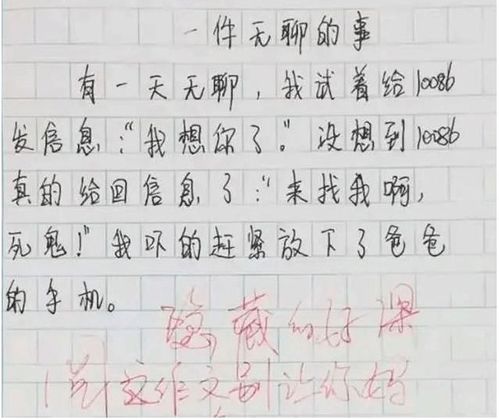 一件无聊的事
有一天无聊，我试着给10086
发信息：“我想你了。”没想到10086
真的给回信息了：“来找我啊，
死鬼！”我吓的赶紧放下了爸爸
的手机。
隐藏的好深
这作文别让你妈